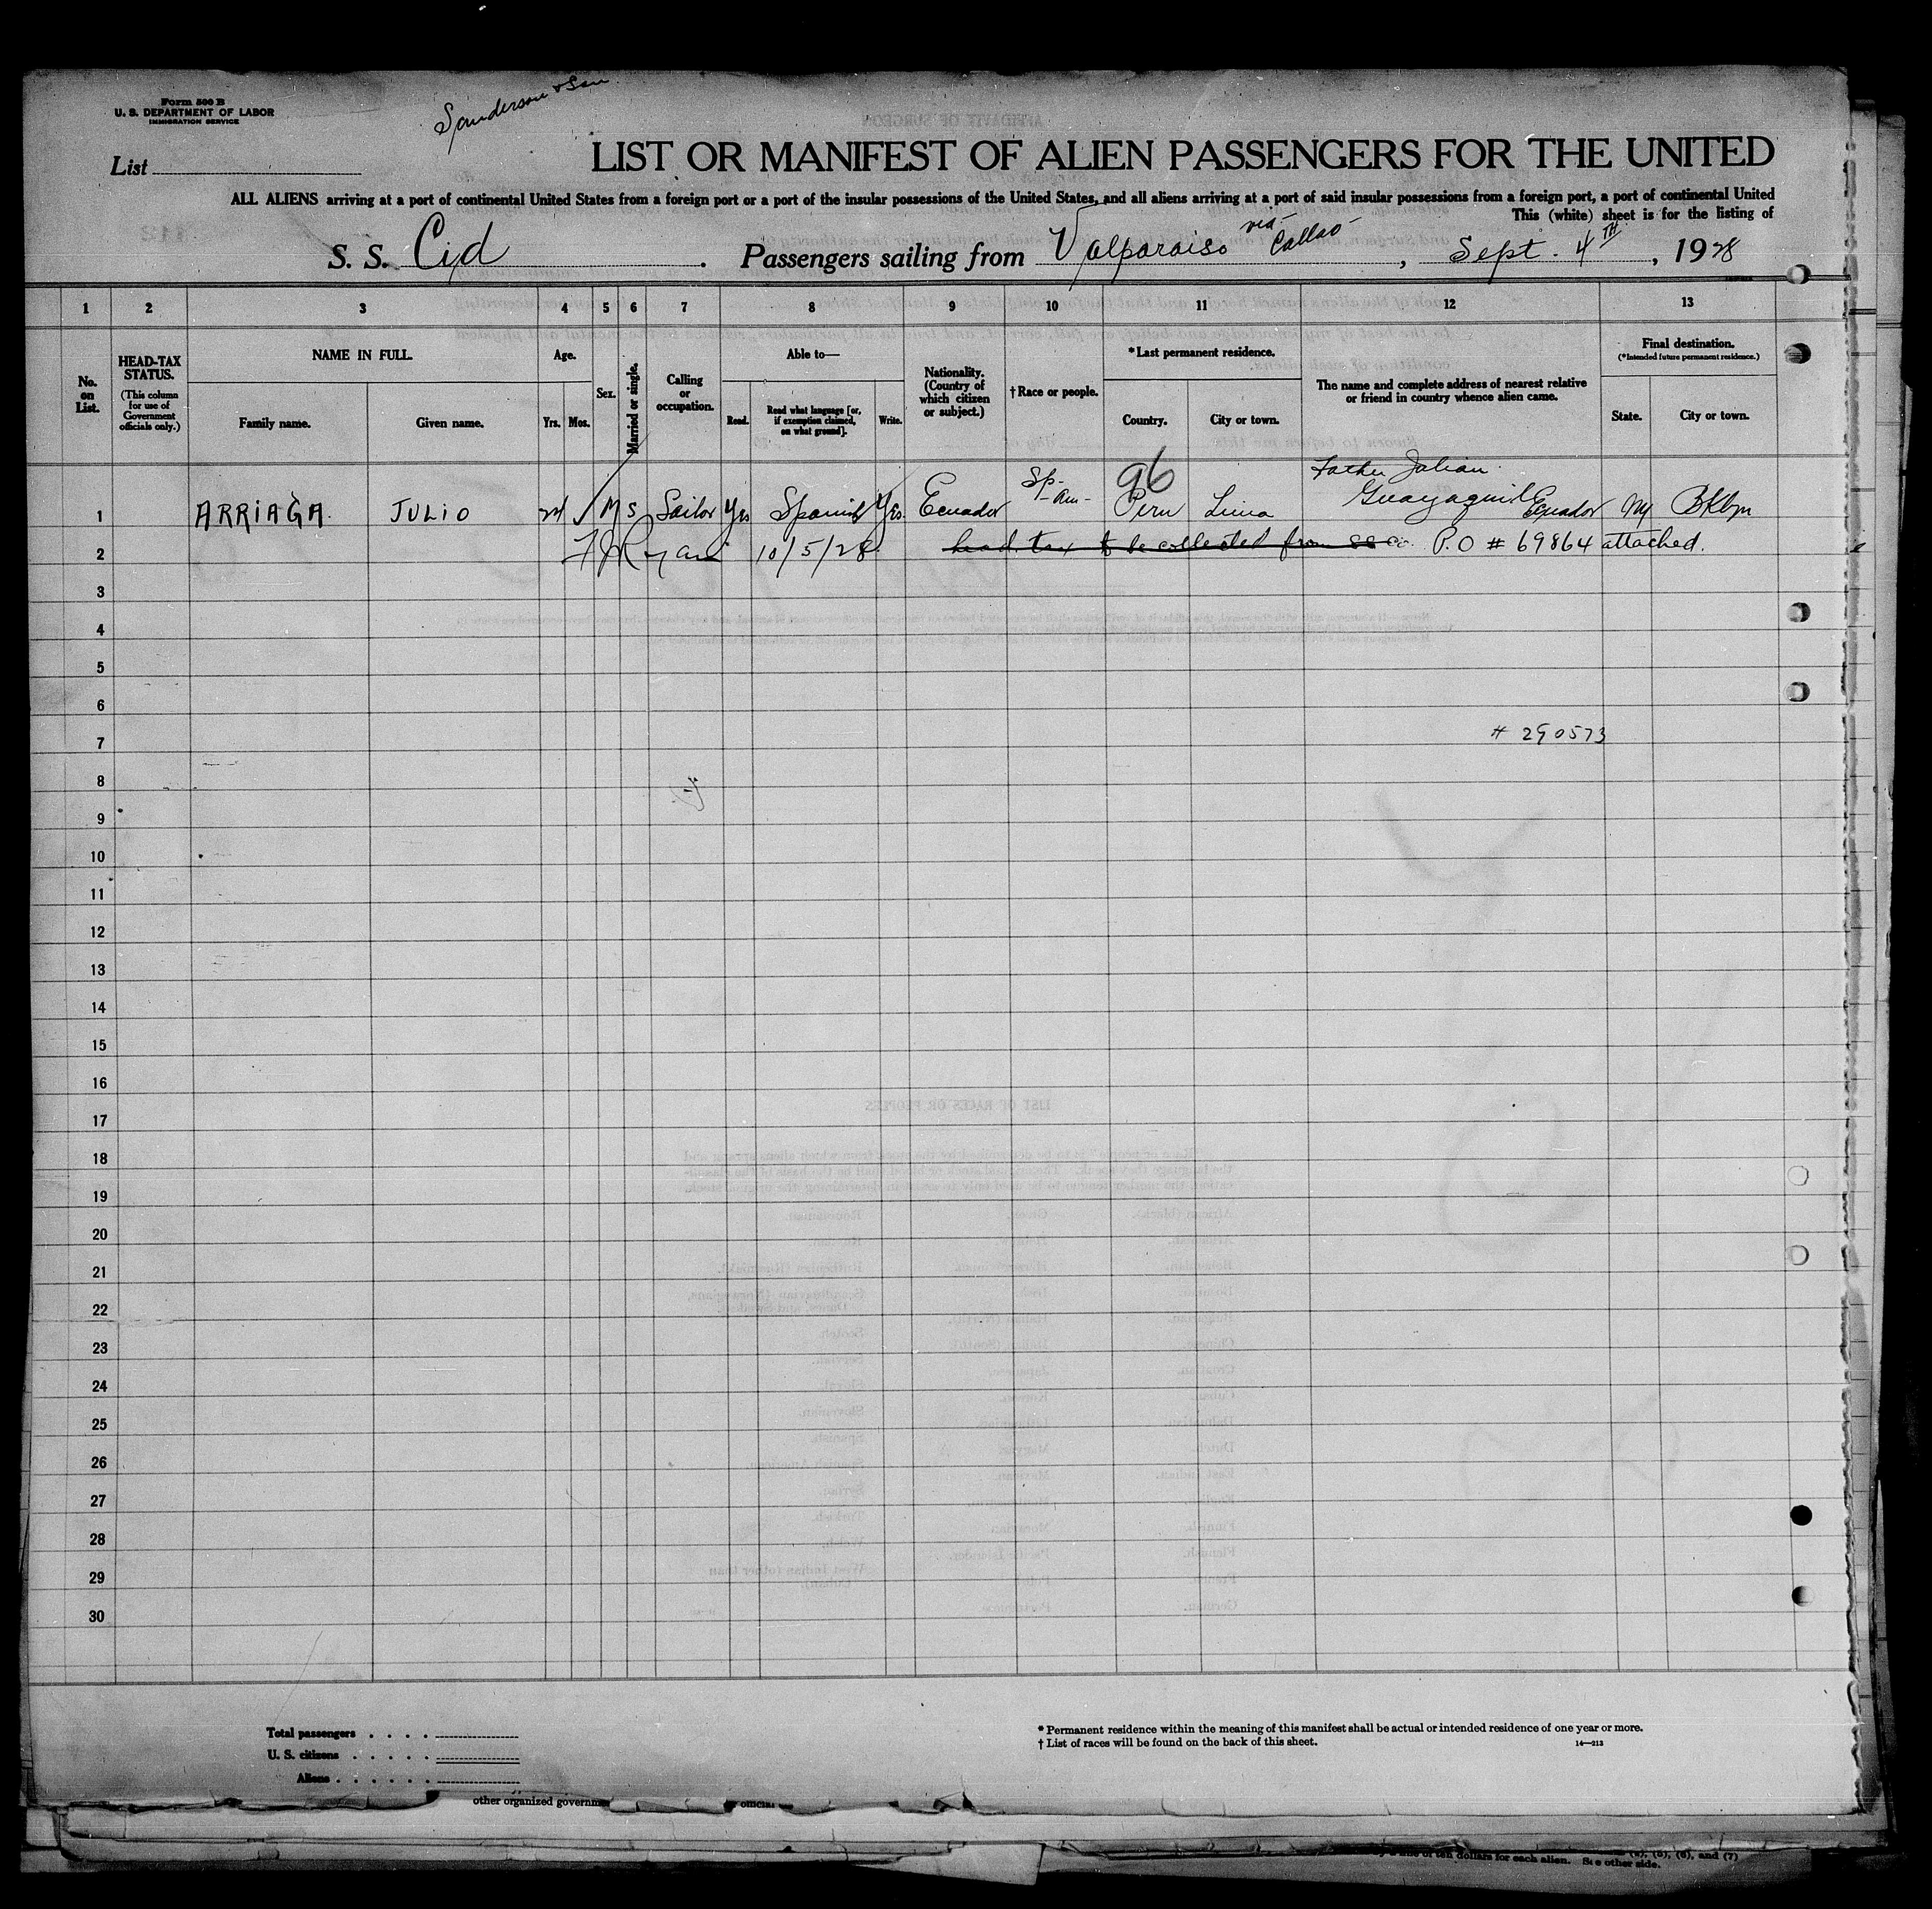 Form 500 B
U. S. DEPARTMENT OF LABOR
IMMIGRATION SERVICE
Sanderson & Son
List
LIST OR MANIFEST OF ALIEN PASSENGERS FOR THE UNITED
ALL ALIENS arriving at a port of continental United States from a foreign port or a port of the insular possessions of the United States, and all aliens arriving at a port of said insular possessions from a foreign port, a port of continental United
This (white) sheet is for the listing of
S. S. Cid. Passengers sailing from Valparaiso via Callao, Sept. 4TH, 1928
1 2 3 4 5 6 7 8 9 10 11 12 13
No. on List.
HEAD-TAX STATUS.
(This column for use of Government officials only.)
NAME IN FULL.
Family name. Given name.
Age.
Yrs. Mos.
Sex.
Married or single.
Calling or occupation.
Able to—
Read. Read what language [or, if exemption claimed, on what ground]. Write.
Nationality. (Country of which citizen or subject.)
† Race or people.
*Last permanent residence.
Country. City or town.
The name and complete address of nearest relative or friend in country whence alien came.
Final destination.
(*Intended future permanent residence.)
State. City or town.
96
Father Julian
1 ARRIAGA JULIO 24 M S Sailor Yes Spanish Yes Ecuador Sp-Am- Peru Lima Guayaquil Ecuador NY Bklyn
2 F J Ryan 10/5/28 head tax to be collected from SS Co. P.O # 69864 attached.
3
4
5
6
7 # 290573
8
9
10
11
12
13
14
15
16
17
18
19
20
21
22
23
24
25
26
27
28
29
30
Total passengers . . . .
U. S. citizens . . . . .
Aliens . . . . . .
* Permanent residence within the meaning of this manifest shall be actual or intended residence of one year or more.
† List of races will be found on the back of this sheet.
14—213
other organized governme
official
of ten dollars for each alien. See other side.
(5), (6), and (7)